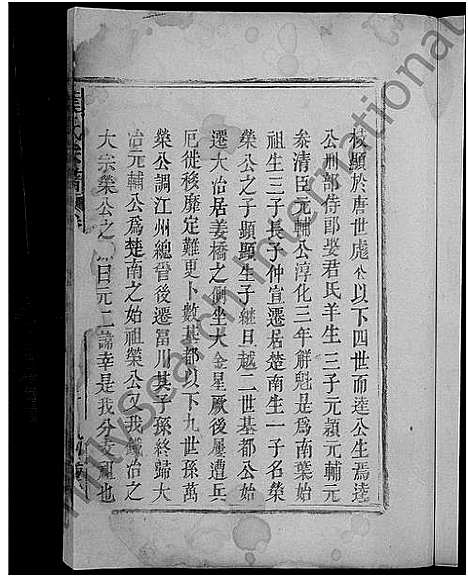 枝顯於唐世彪公以下四世而逵公生焉逵
公刑部侍郎娶君氏羊生三子元穎元輔元
叅清臣元輔公淳化三年解魁是爲南葉始
祖生三子長子仲宣遷居楚南生一子名榮
榮公之子顯顯生子継日越二世基都公始
遷大冶居姜橋之側坐大金星厥後屢遭兵
厄徙移靡定難更卜數基都以下九世孫萬
榮公調江州總管後遷富川其子孫終歸大
冶元輔公爲楚南之始祖榮公又我鐵冶之
大宗榮公之 曰元二 幸是我分 祖也
氏宗譜
FamilySearch International